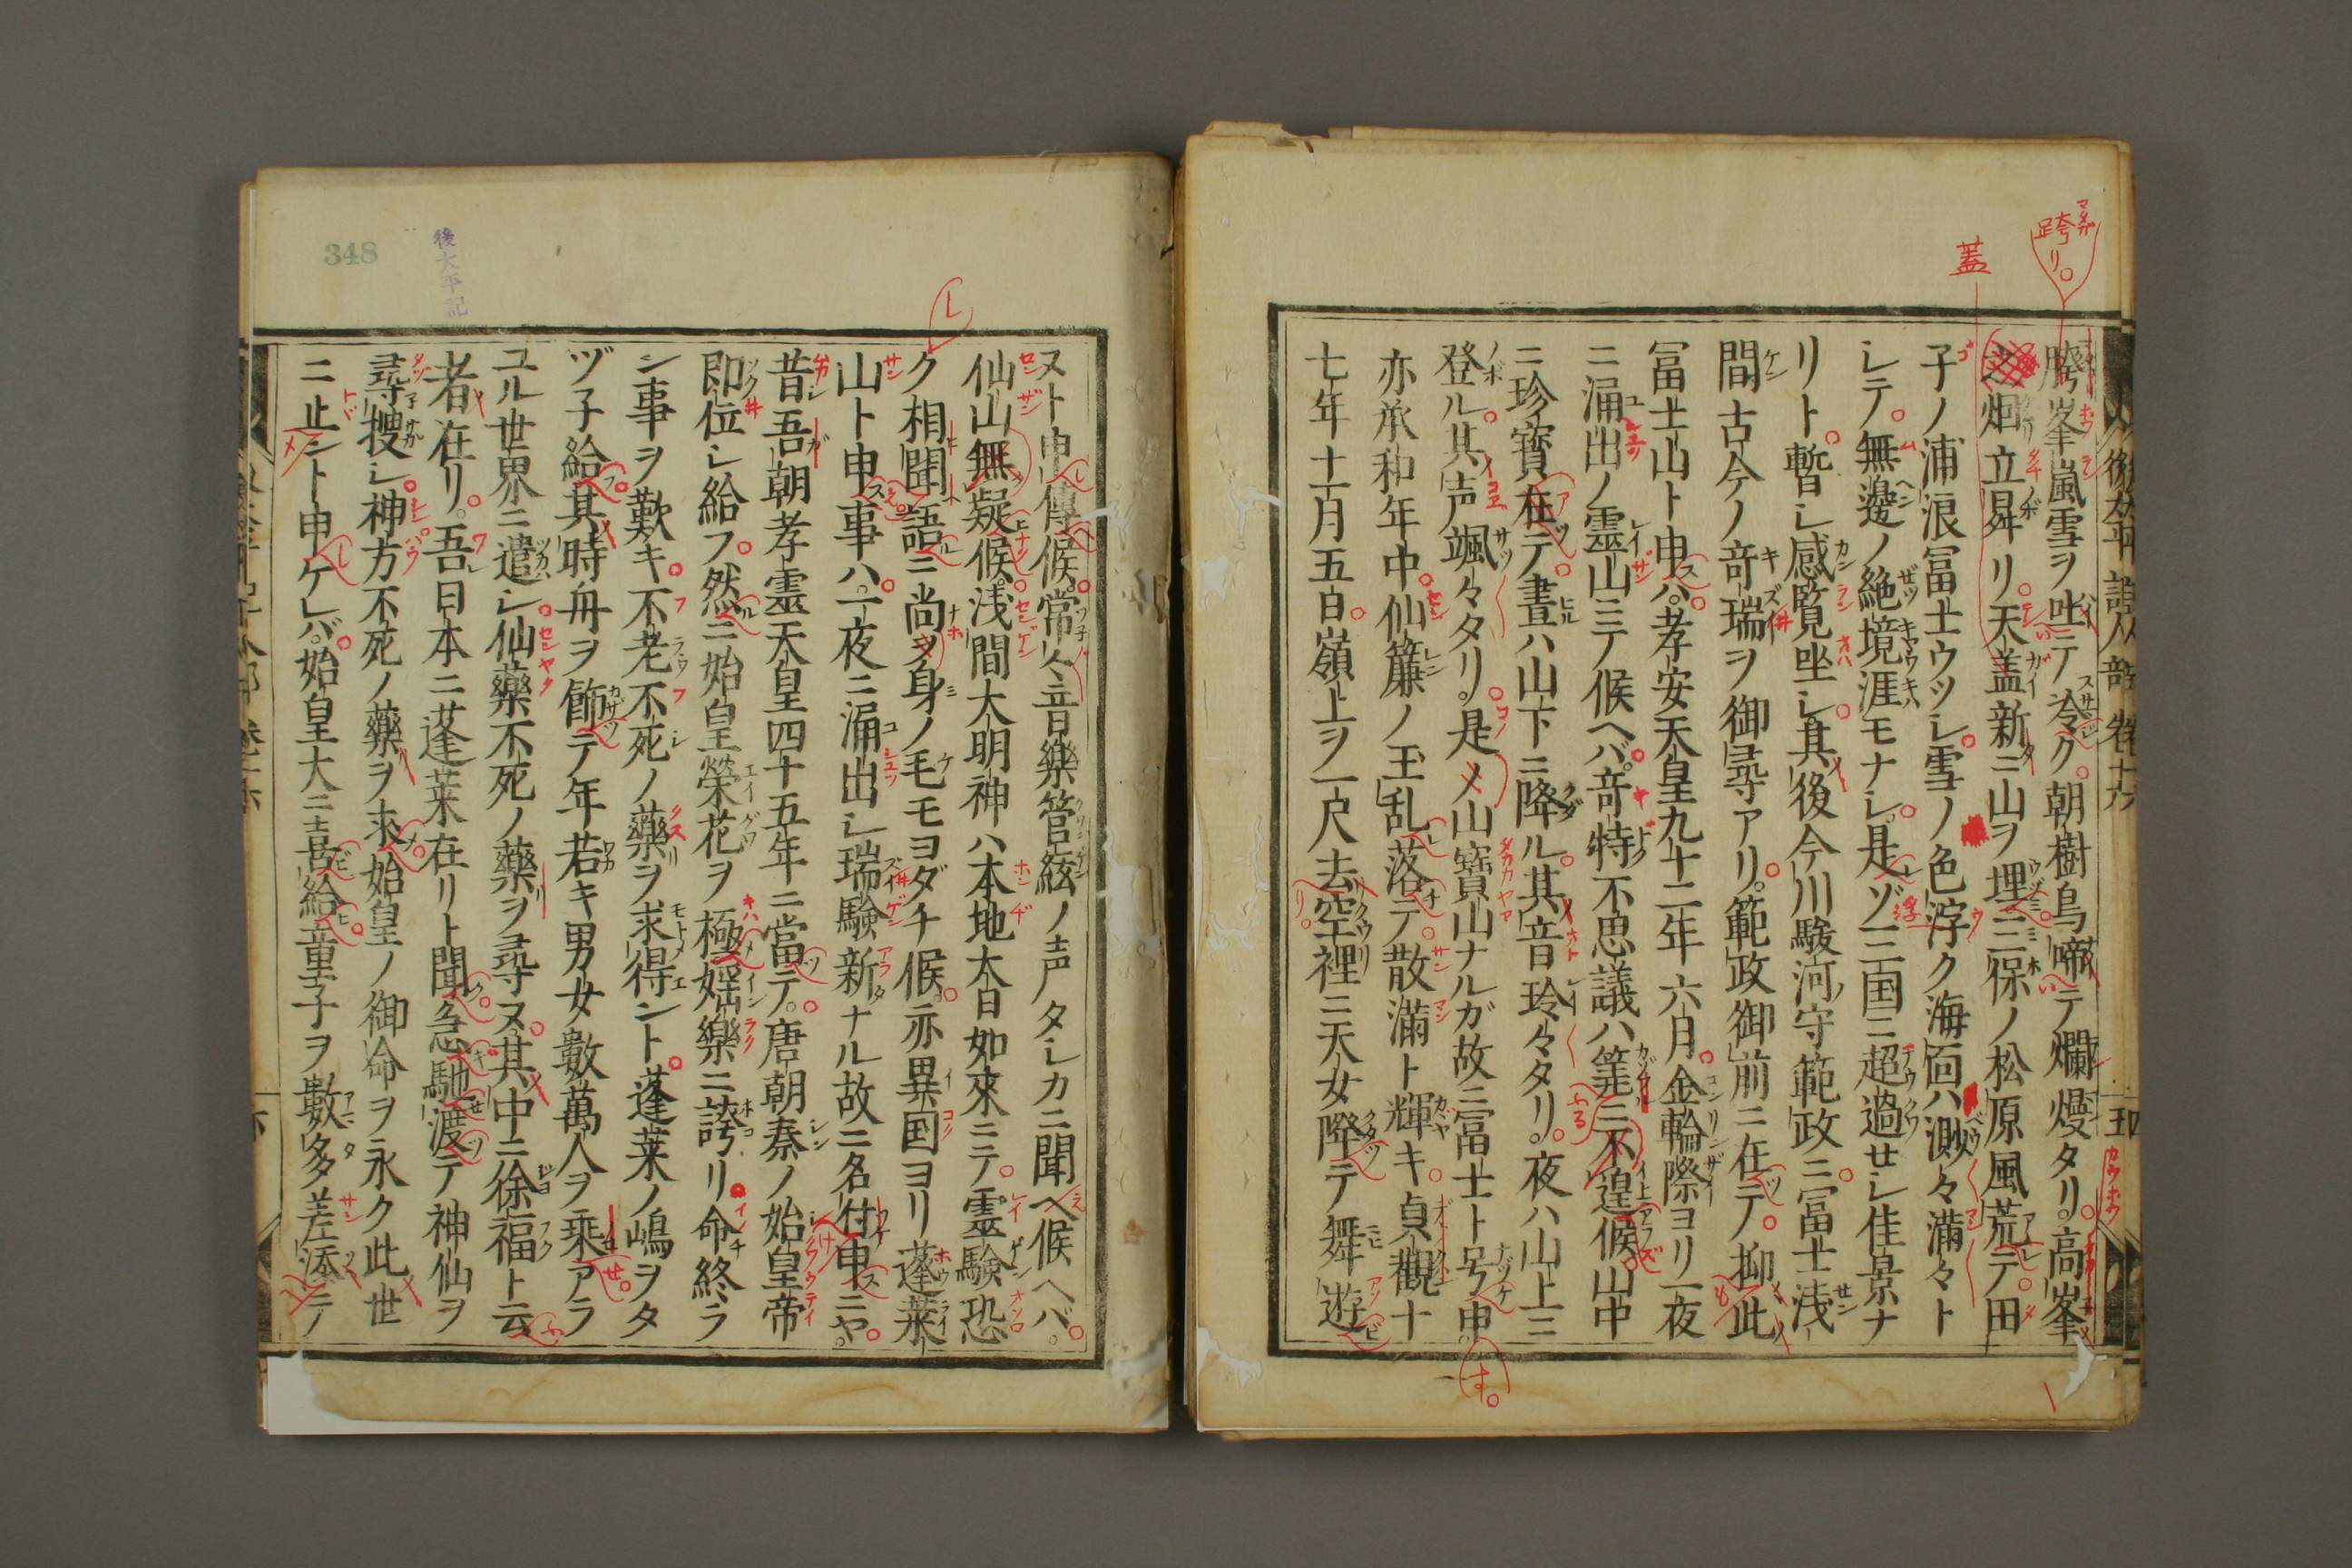 跨リ。
蓋
胯峯嵐雪ヲ吐テ冷ク朝樹鳥啼テ爛熳タリ高峯
烟立昇リ天盖新ニ山ヲ埋三保ノ松原風荒テ田
子ノ浦浪冨士ウツシ雪ノ色浮ク海面ハ渺々満々ト
シテ無邊ノ絶境涯モナシ是ゾ三国ニ超過セシ佳景ナ
リト暫シ感覧坐シ其後今川駿河守範政ニ冨士浅
間古今ノ竒瑞ヲ御尋アリ範政御前ニ在テ抑此
冨士山ト申ハ孝安天皇九十二年六月金輪際ヨリ一夜
ニ涌出ノ靈山ニテ候ヘバ竒特不思議ハ筭ニ不遑候山中
ニ珍寳在テ晝ハ山下ニ降ル其音玲々タリ夜ハ山上ニ
登ル其声颯々タリ是〆山寳山ナルガ故ニ冨士ト号申
亦承和年中仙簾ノ玉乱落テ散満ト輝キ貞觀十
七年十一月五日嶺上ヲ一尺去空裡ニ天女降テ舞遊
す。
348
後太平記
ヌト申傳候常々音樂管絃ノ声タシカニ聞ヘ候ヘバ
仙山無疑候浅間大明神ハ本地大日如來ニテ霊験恐
ク相聞語ニ尚タ身ノ毛モヨダチ候亦異国ヨリ蓬莱
山ト申事ハ一夜ニ涌出シ瑞験新ナル故ニ名付申ニヤ
昔吾朝孝霊天皇四十五年ニ當テ唐朝秦ノ始皇帝
即位シ給フ然ニ始皇榮花ヲ極婬樂ニ誇リ命終ラ
ン事ヲ歎キ不老不死ノ藥ヲ求得ント蓬莱ノ嶋ヲタ
ヅ子給其時舟ヲ餝テ年若キ男女數萬人ヲ乗アラ
ユル世界ニ遣シ仙藥不死ノ藥ヲ尋ヌ其中ニ徐福ト云
者在リ吾日本ニ蓬莱在リト聞急馳渡テ神仙ヲ
尋搜シ神方不死ノ藥ヲ求始皇ノ御命ヲ永ク此世
ニ止ント申ケレバ始皇大ニ喜給童子ヲ數多差添テ